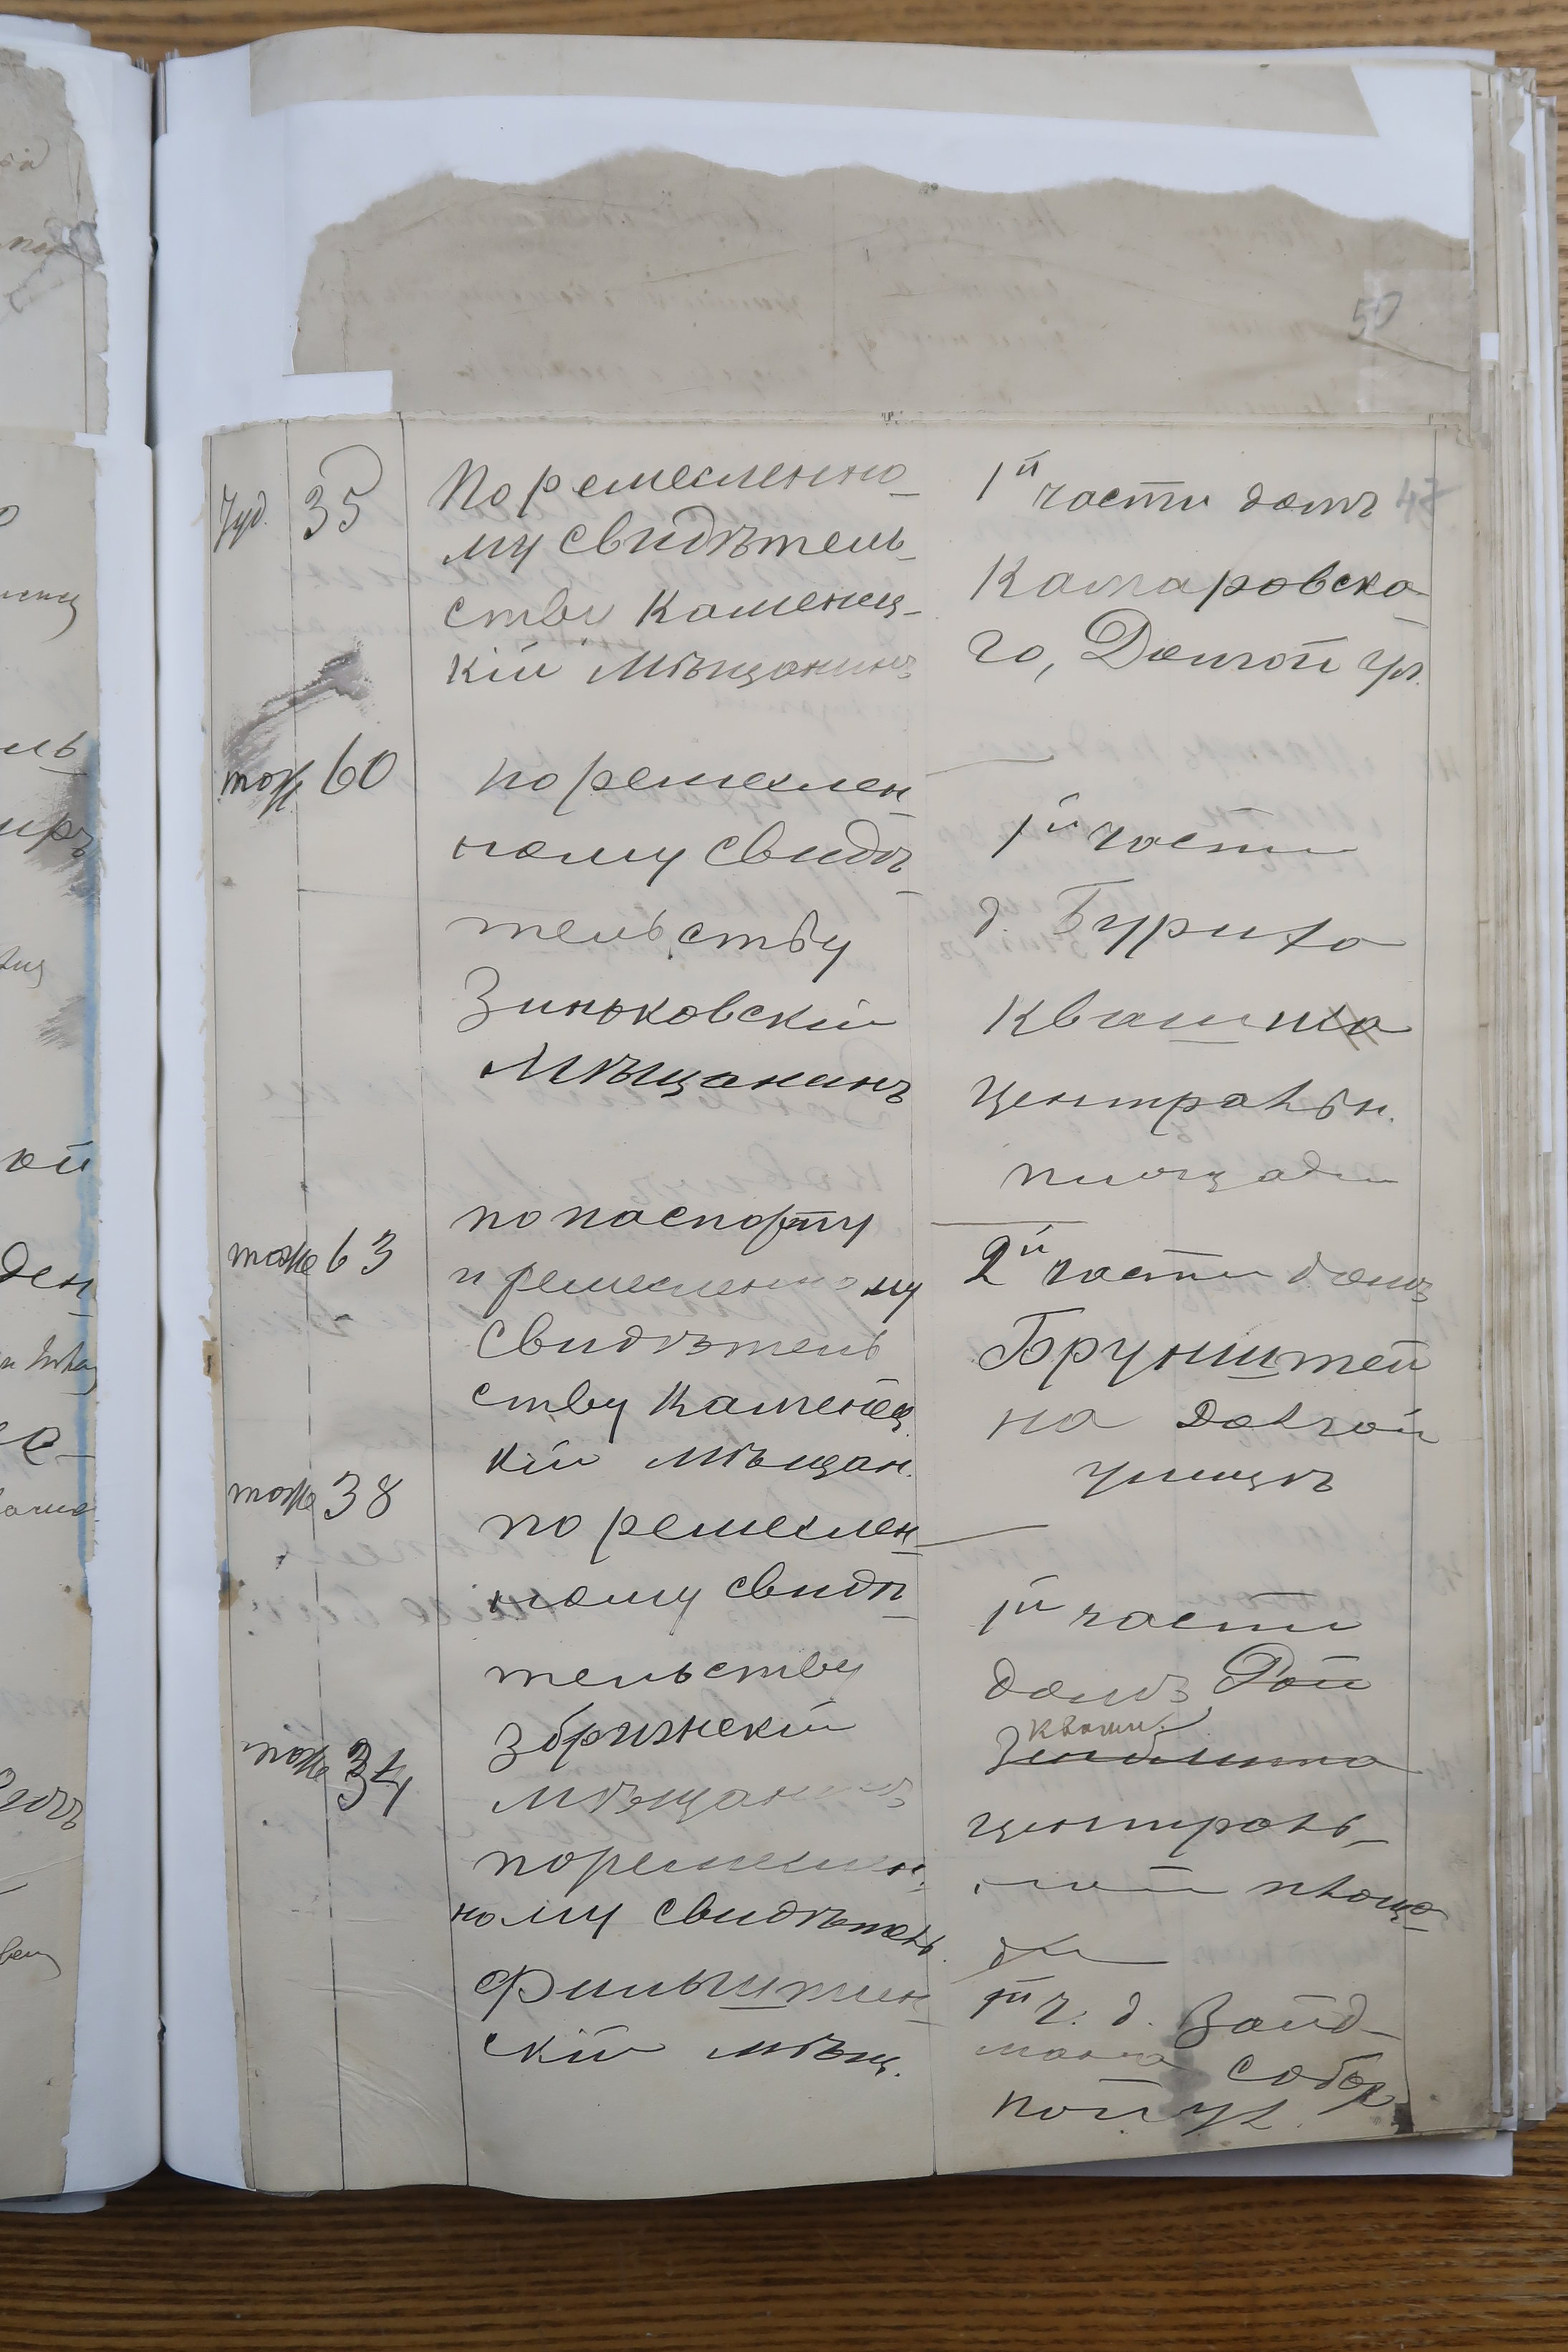 50
Іуд. 35 По ремесленно-
му свидѣтель-
ству Каменец-
кій Мѣщанинъ
1й части домъ
Камаровска-
го, Долгой ул.
тоже 60 по ремеслен-
ному свидѣ-
тельству
Зиньковскій
Мѣщанинъ
1й части
д. Буриха
Квашка
Центральн.
площади
тоже 63 по паспорту
и ремесленному
свидѣтель
ству Каменец.
кій мѣщан.
2й части домъ
Брунштей
на Долгой
улицѣ
тоже 38 по ремеслен-
ному свидѣ-
тельству
Збрижскій
мѣщанинъ
1й части
домъ Рой
Кваш.
централь-
ной площа-
ди
тоже 34 по ремеслен-
ному свидѣтель.
Фильштин-
скій мѣщ.
1й ч. д. Вайд-
мана Собор
ной ул.